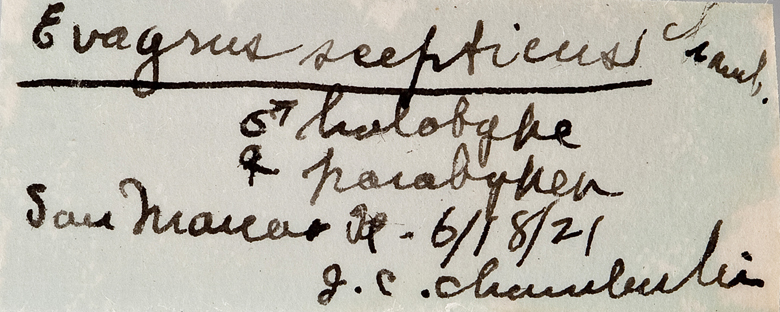 Evagrus scepticus Chamb.
♂ holotype
♀ paratypes
San Marcos Is. - 6/18/21
J. C. Chamberlin